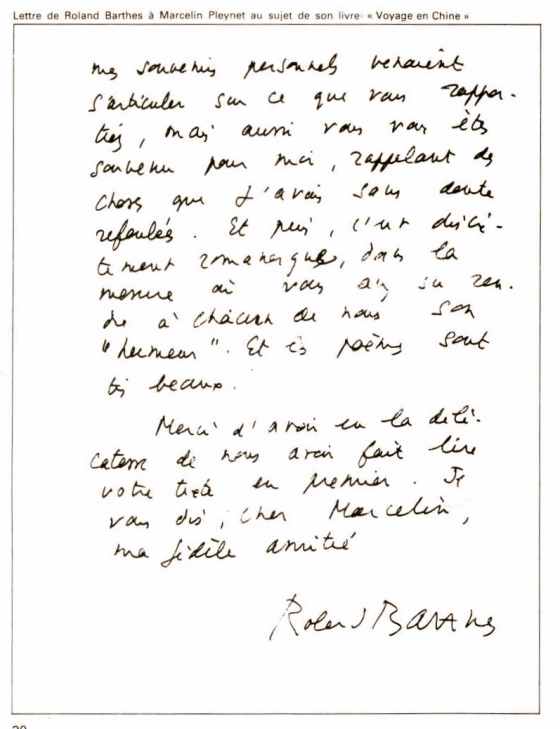 Lettre de Roland Barthes à Marcelin Pleynet au sujet de son livre: « Voyage en Chine »
mes souvenirs personnels venaient
s'articuler sur ce que vous rappor-
tiez, mais aussi vous vous êtes
souvenu pour moi, rappelant des
choses que j'avais sans doute
refoulées. Et puis, c'est discrè-
tement romanesque, dans la
mesure où vous avez su ren-
dre à chacun de nous son
"humeur". Et les poèmes sont
très beaux.
Merci d'avoir eu la déli-
catesse de nous avoir fait lire
votre texte en premier. Je
vous dis, cher Marcelin,
ma fidèle amitié
Roland Barthes